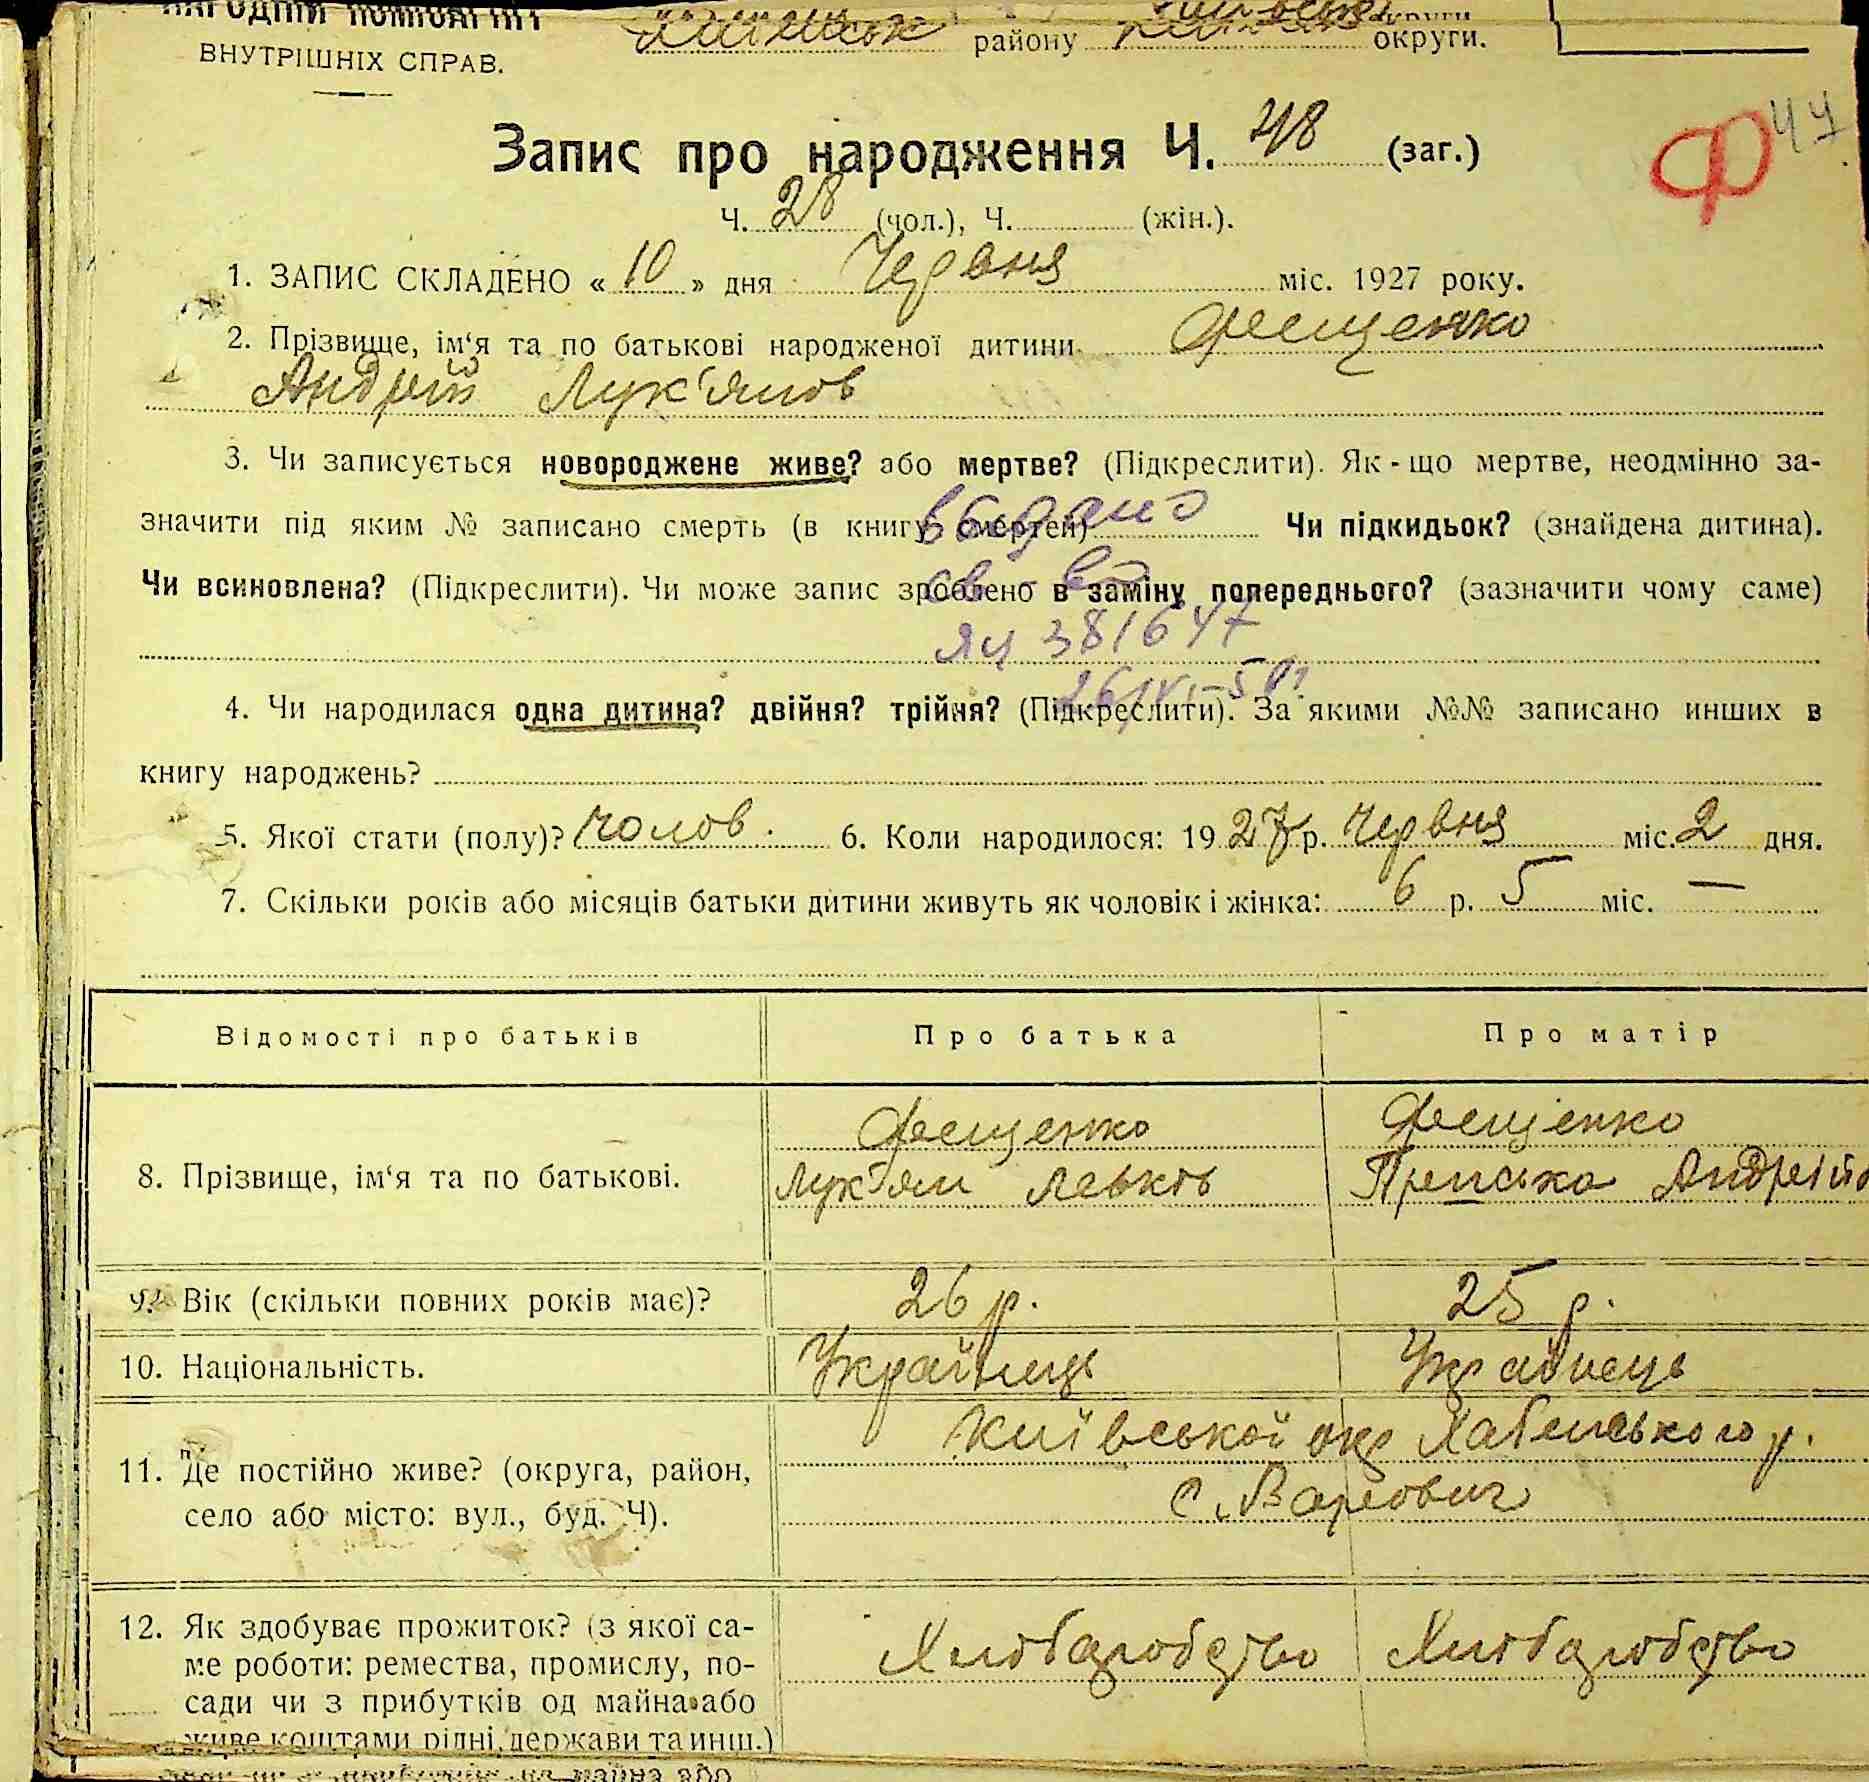 ВНУТРІШНІХ СПРАВ.
району округи.
Запис про народження Ч. 48 (заг.)
Ч. 28 (чол.), Ч. (жін.).
1. ЗАПИС СКЛАДЕНО « 10 » дня Червня міс. 1927 року.
2. Прізвище, ім‘я та по батькові народженої дитини Фещенко
Андрій Лук'янов
3. Чи записується новороджене живе? або мертве? (Підкреслити). Як-що мертве, неодмінно за-
значити під яким № записано смерть (в книгу смертей) Чи підкидьок? (знайдена дитина).
выдано
Чи всиновлена? (Підкреслити). Чи може запис зроблено в заміну попереднього? (зазначити чому саме)
св-во
381647
4. Чи народилася одна дитина? двійня? трійня? (Підкреслити). За якими №№ записано инших в
книгу народжень?
5. Якої стати (полу)? чолов. 6. Коли народилося: 1927 р. Червня міс. 2 дня.
7. Скільки років або місяців батьки дитини живуть як чоловік і жінка: 6 р. 5 міс. —
Відомості про батьків Про батька Про матір
8. Прізвище, ім‘я та по батькові. Фещенко Фещенко
Лук'ян Левков Андріїв
9. Вік (скільки повних років має)? 26 р. 25 р.
10. Національність. Українець Українець
11. Де постійно живе? (округа, район, Київської окр Хабенського р.
село або місто: вул., буд. Ч). с. Варовичі
12. Як здобуває прожиток? (з якої са- Хліборобство Хліборобство
ме роботи: ремества, промислу, по-
сади чи з прибутків од майна або
живе коштами рідні, держави та инш.)